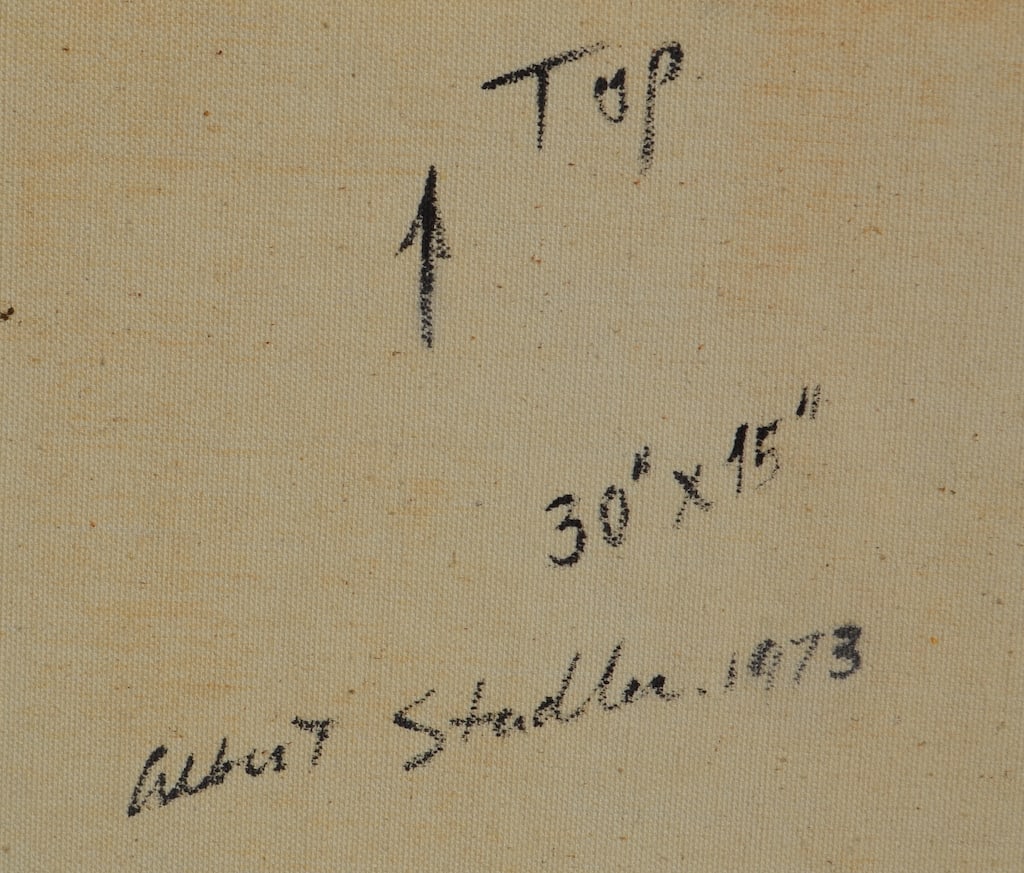 Top
30" x 15"
Albert Stadler. 1973